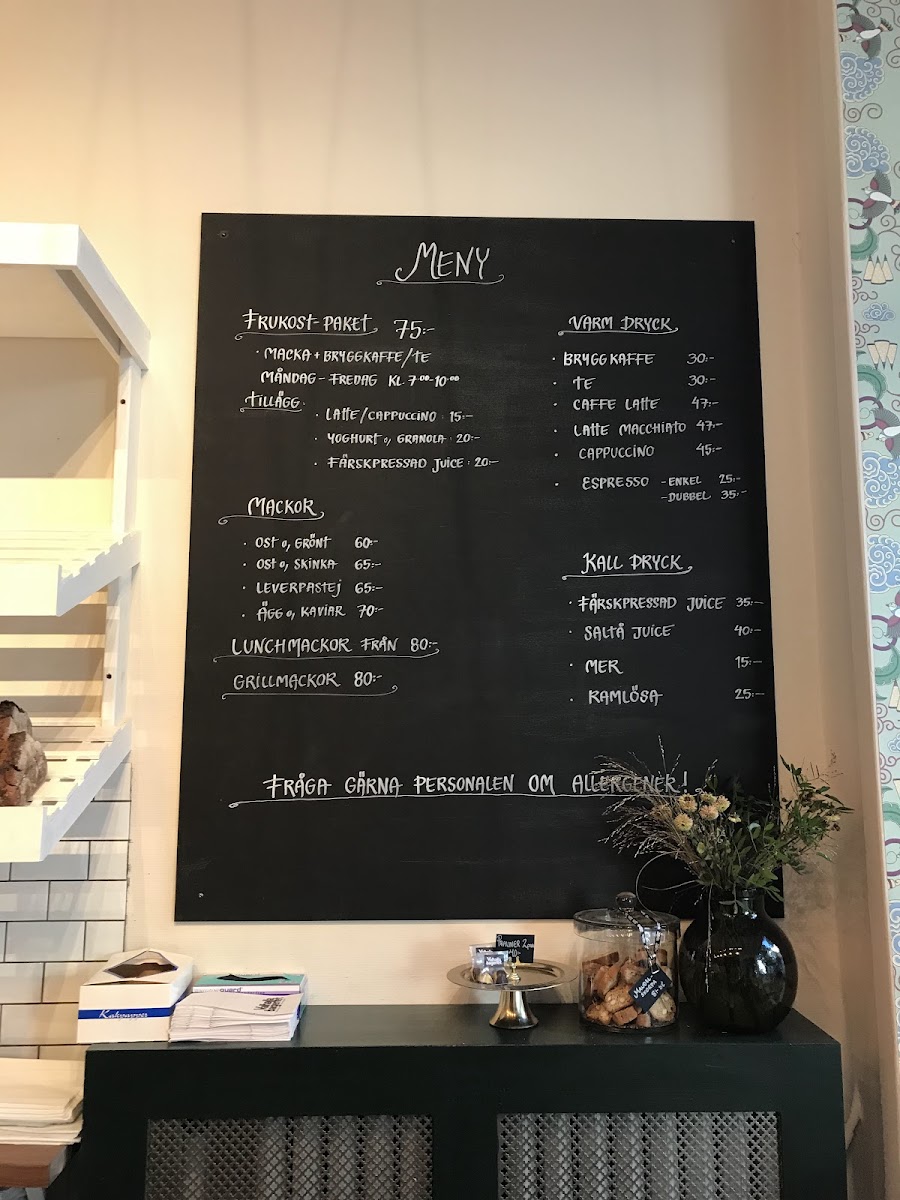 MENY
FRUKOST-PAKET 75:-
· MACKA + BRYGGKAFFE/TE
MÅNDAG - FREDAG KL. 7⁰⁰-10⁰⁰
TILLÄGG
· LATTE/CAPPUCCINO : 15:-
· YOGHURT o, GRANOLA : 20:-
· FÄRSKPRESSAD JUICE : 20:-
MACKOR
· OST o, GRÖNT 60:-
· OST o, SKINKA 65:-
· LEVERPASTEJ 65:-
· ÄGG o, KAVIAR 70:-
LUNCHMACKOR FRÅN 80:-
GRILLMACKOR 80:-
VARM DRYCK
· BRYGGKAFFE 30:-
· TE 30:-
· CAFFE LATTE 47:-
· LATTE MACCHIATO 47:-
· CAPPUCCINO 45:-
· ESPRESSO - ENKEL 25:-
- DUBBEL 35:-
KALL DRYCK
· FÄRSKPRESSAD JUICE 35:-
· SALTÅ JUICE 40:-
· MER 15:-
· RAMLÖSA 25:-
FRÅGA GÄRNA PERSONALEN OM ALLERGENER!
PRALINER
Kakservor